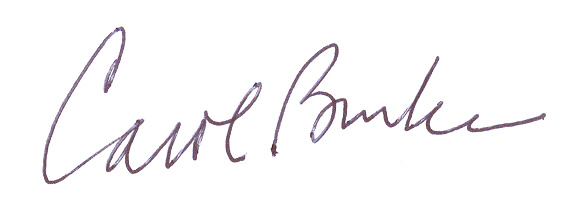 Carol Burke